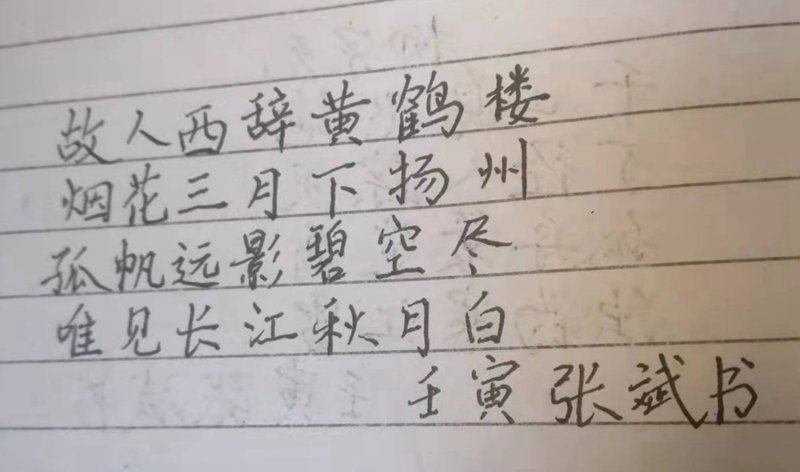 故人西辞黄鹤楼
烟花三月下扬州
孤帆远影碧空尽
唯见长江秋月白
壬寅张斌书